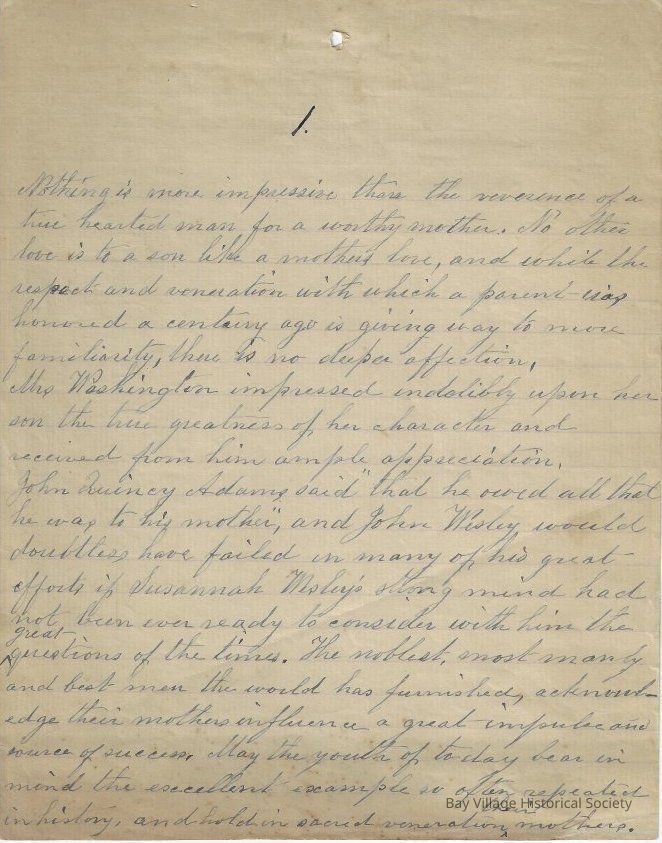 1.
Nothing is more impressive than the reverence of a
true hearted man for a worthy mother. No other
love is to a son like a mothers love, and while the
respect and veneration with which a parent was
honored a century ago is giving way to more
familiarity, there is no deeper affection.
Mrs Washington impressed indelibly upon her
son the true greatness of her character and
received from him ample appreciation.
John Quincy Adams said "that he owed all that
he was to his mother", and John Wesley would
doubtless have failed in many of his great
efforts if Susannah Wesley's strong mind had
not been ever ready to consider with him the
great
questions of the times. The noblest, most manly
and best men the world has furnished, acknowl-
edge their mothers influence a great impulse and
source of success. May the youth of to day bear in
mind the excellent example so often repeated
in history, and hold in sacred veneration mothers.
Bay Village Historical Society